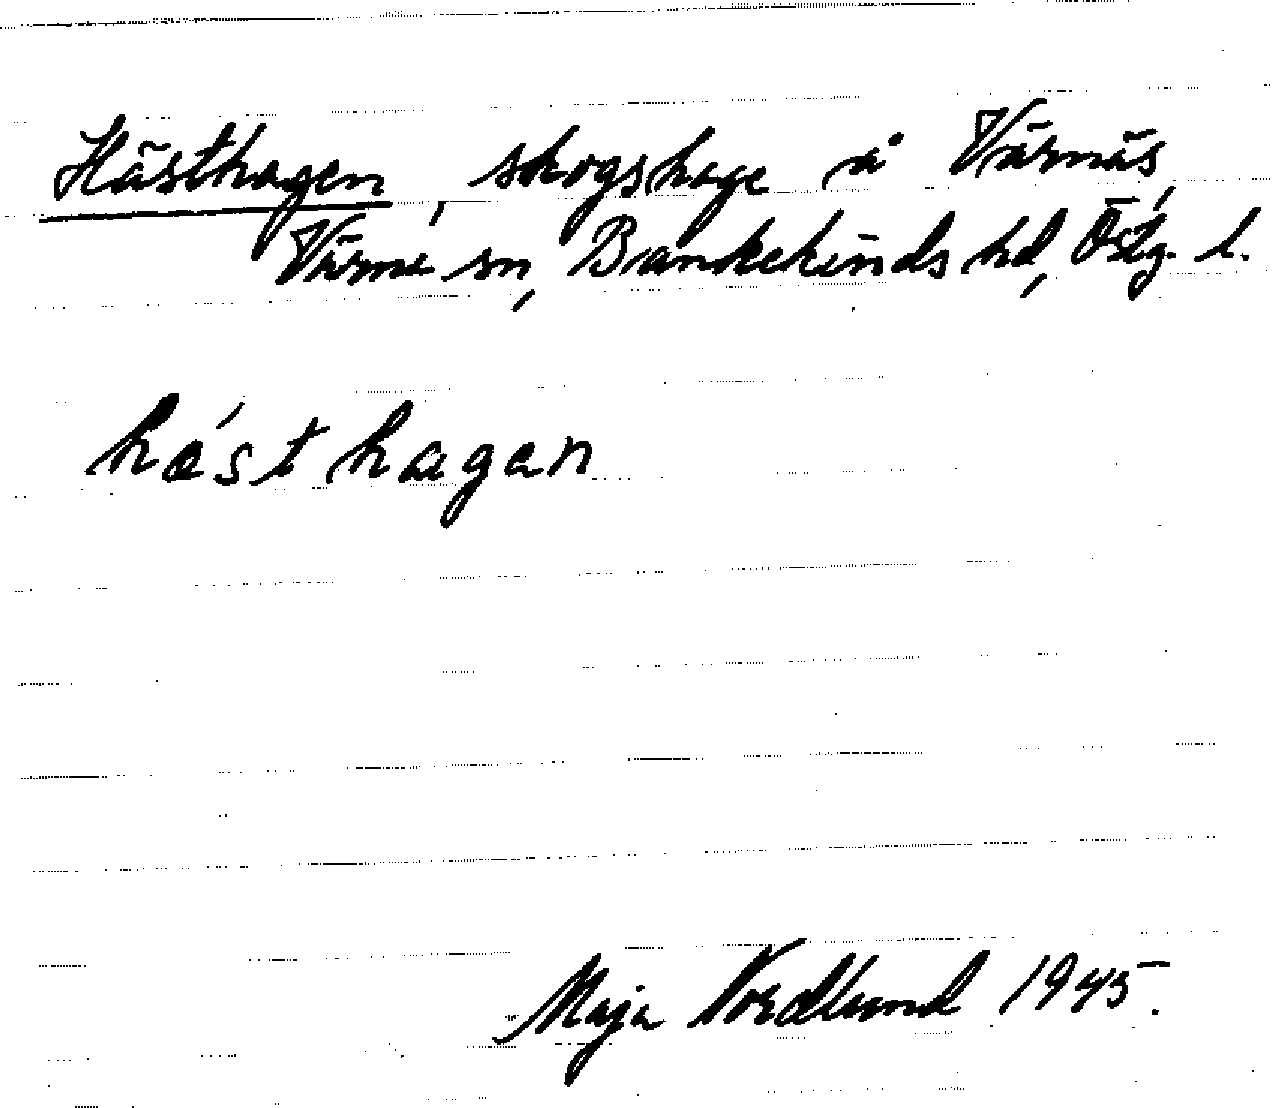 Hästhagen, skogshage å Värnäs,
Värna sn, Bankekinds hd, Östg. l.
hásthagan
Maja Nordlund 1945.